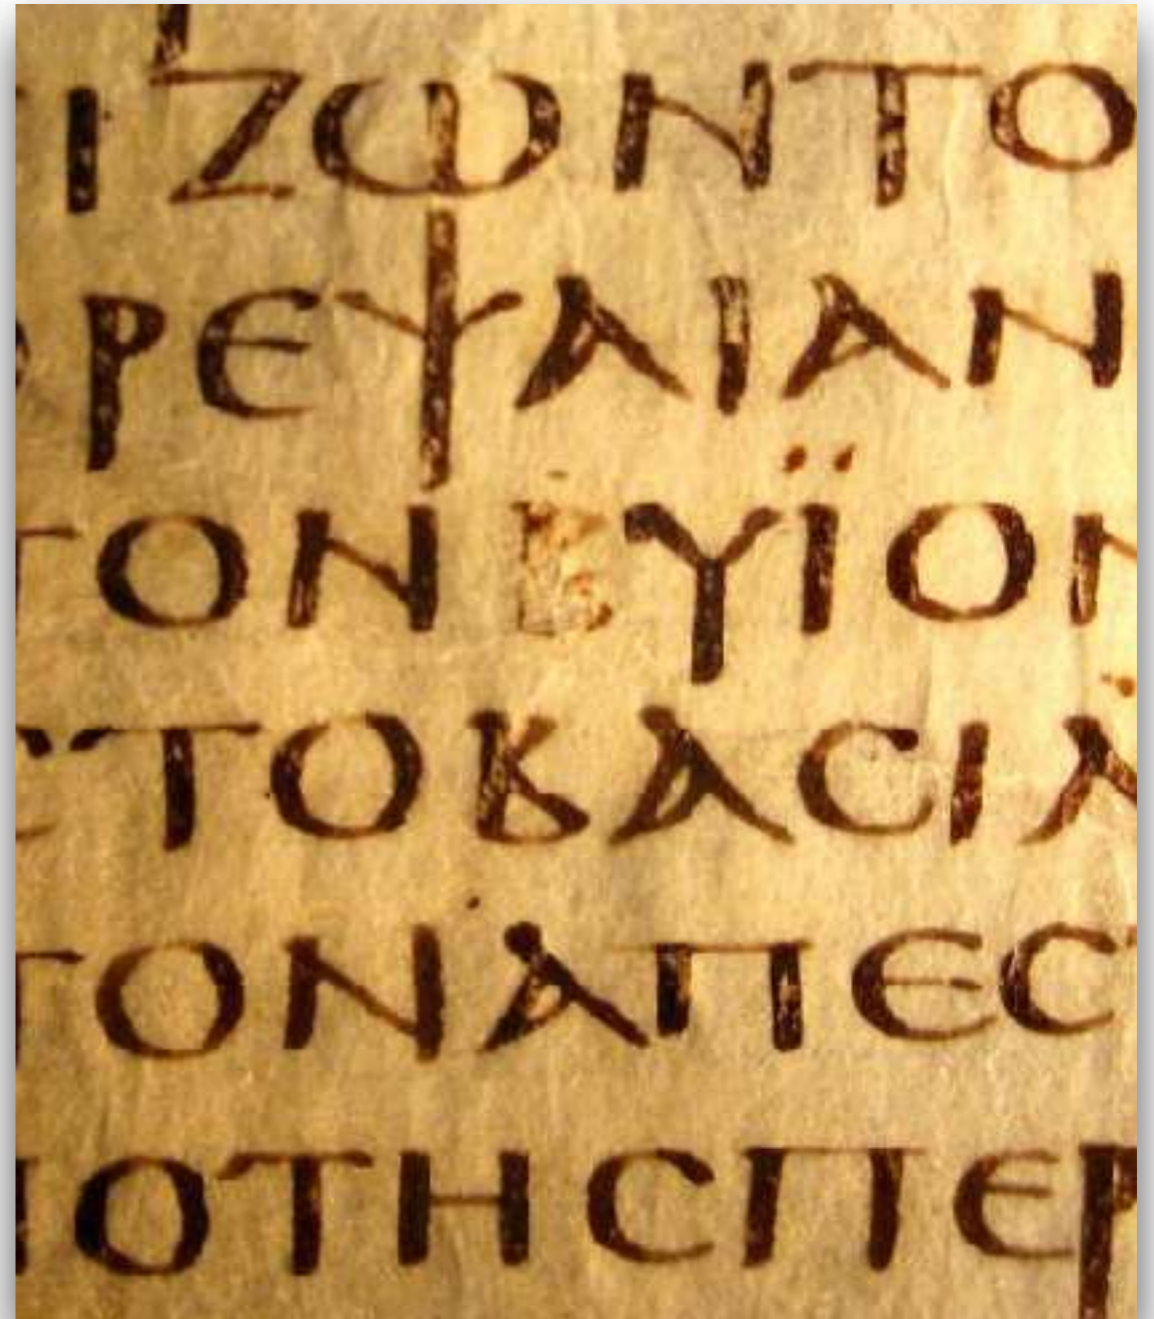 ΙΖΩΝΤΟ
ΡΕΨΑΙΑΝ
ΤΟΝ ΥΪΟΝ
ϹΤΟΒΑϹΙΛ
ΤΟΝΑΠΕϹΤ
ΠΟΤΗϹΠΕΡ